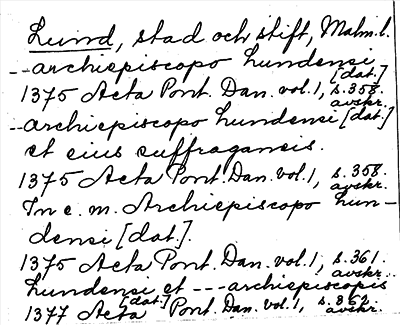 Lund, stad och stift, Malm.l.
--archiepiscopo Lundensi [dat.]
1375 Acta Pont. Dan. vol. 1, s. 358. avskr.
--archiepiscopo Lundensi [dat.]
et eius suffraganeis.
1375 Acta Pont. Dan. vol. 1, s. 358. avskr.
In c. m. Archiepiscopo Lun-
densi [dat.].
1375 Acta Pont. Dan. vol. 1, s. 361. avskr.
Lundensi et --- archiepiscopis [dat.]
1377 Acta Pont. Dan. vol. 1, s. 362. avskr.